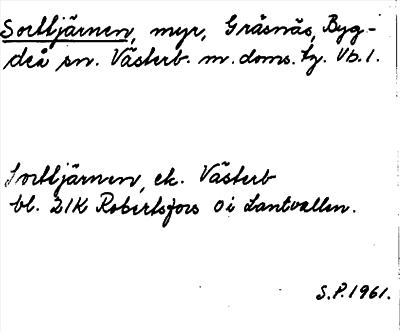 Sorttjärnen, myr, Gråsnäs, Byg-
deå sn. Västerb. m. doms. tg. Vb. 1.
Sorttjärnen, ek. Västerb
bl. 21K Robertsfors 0 i Lantvallen.
S.P. 1961.